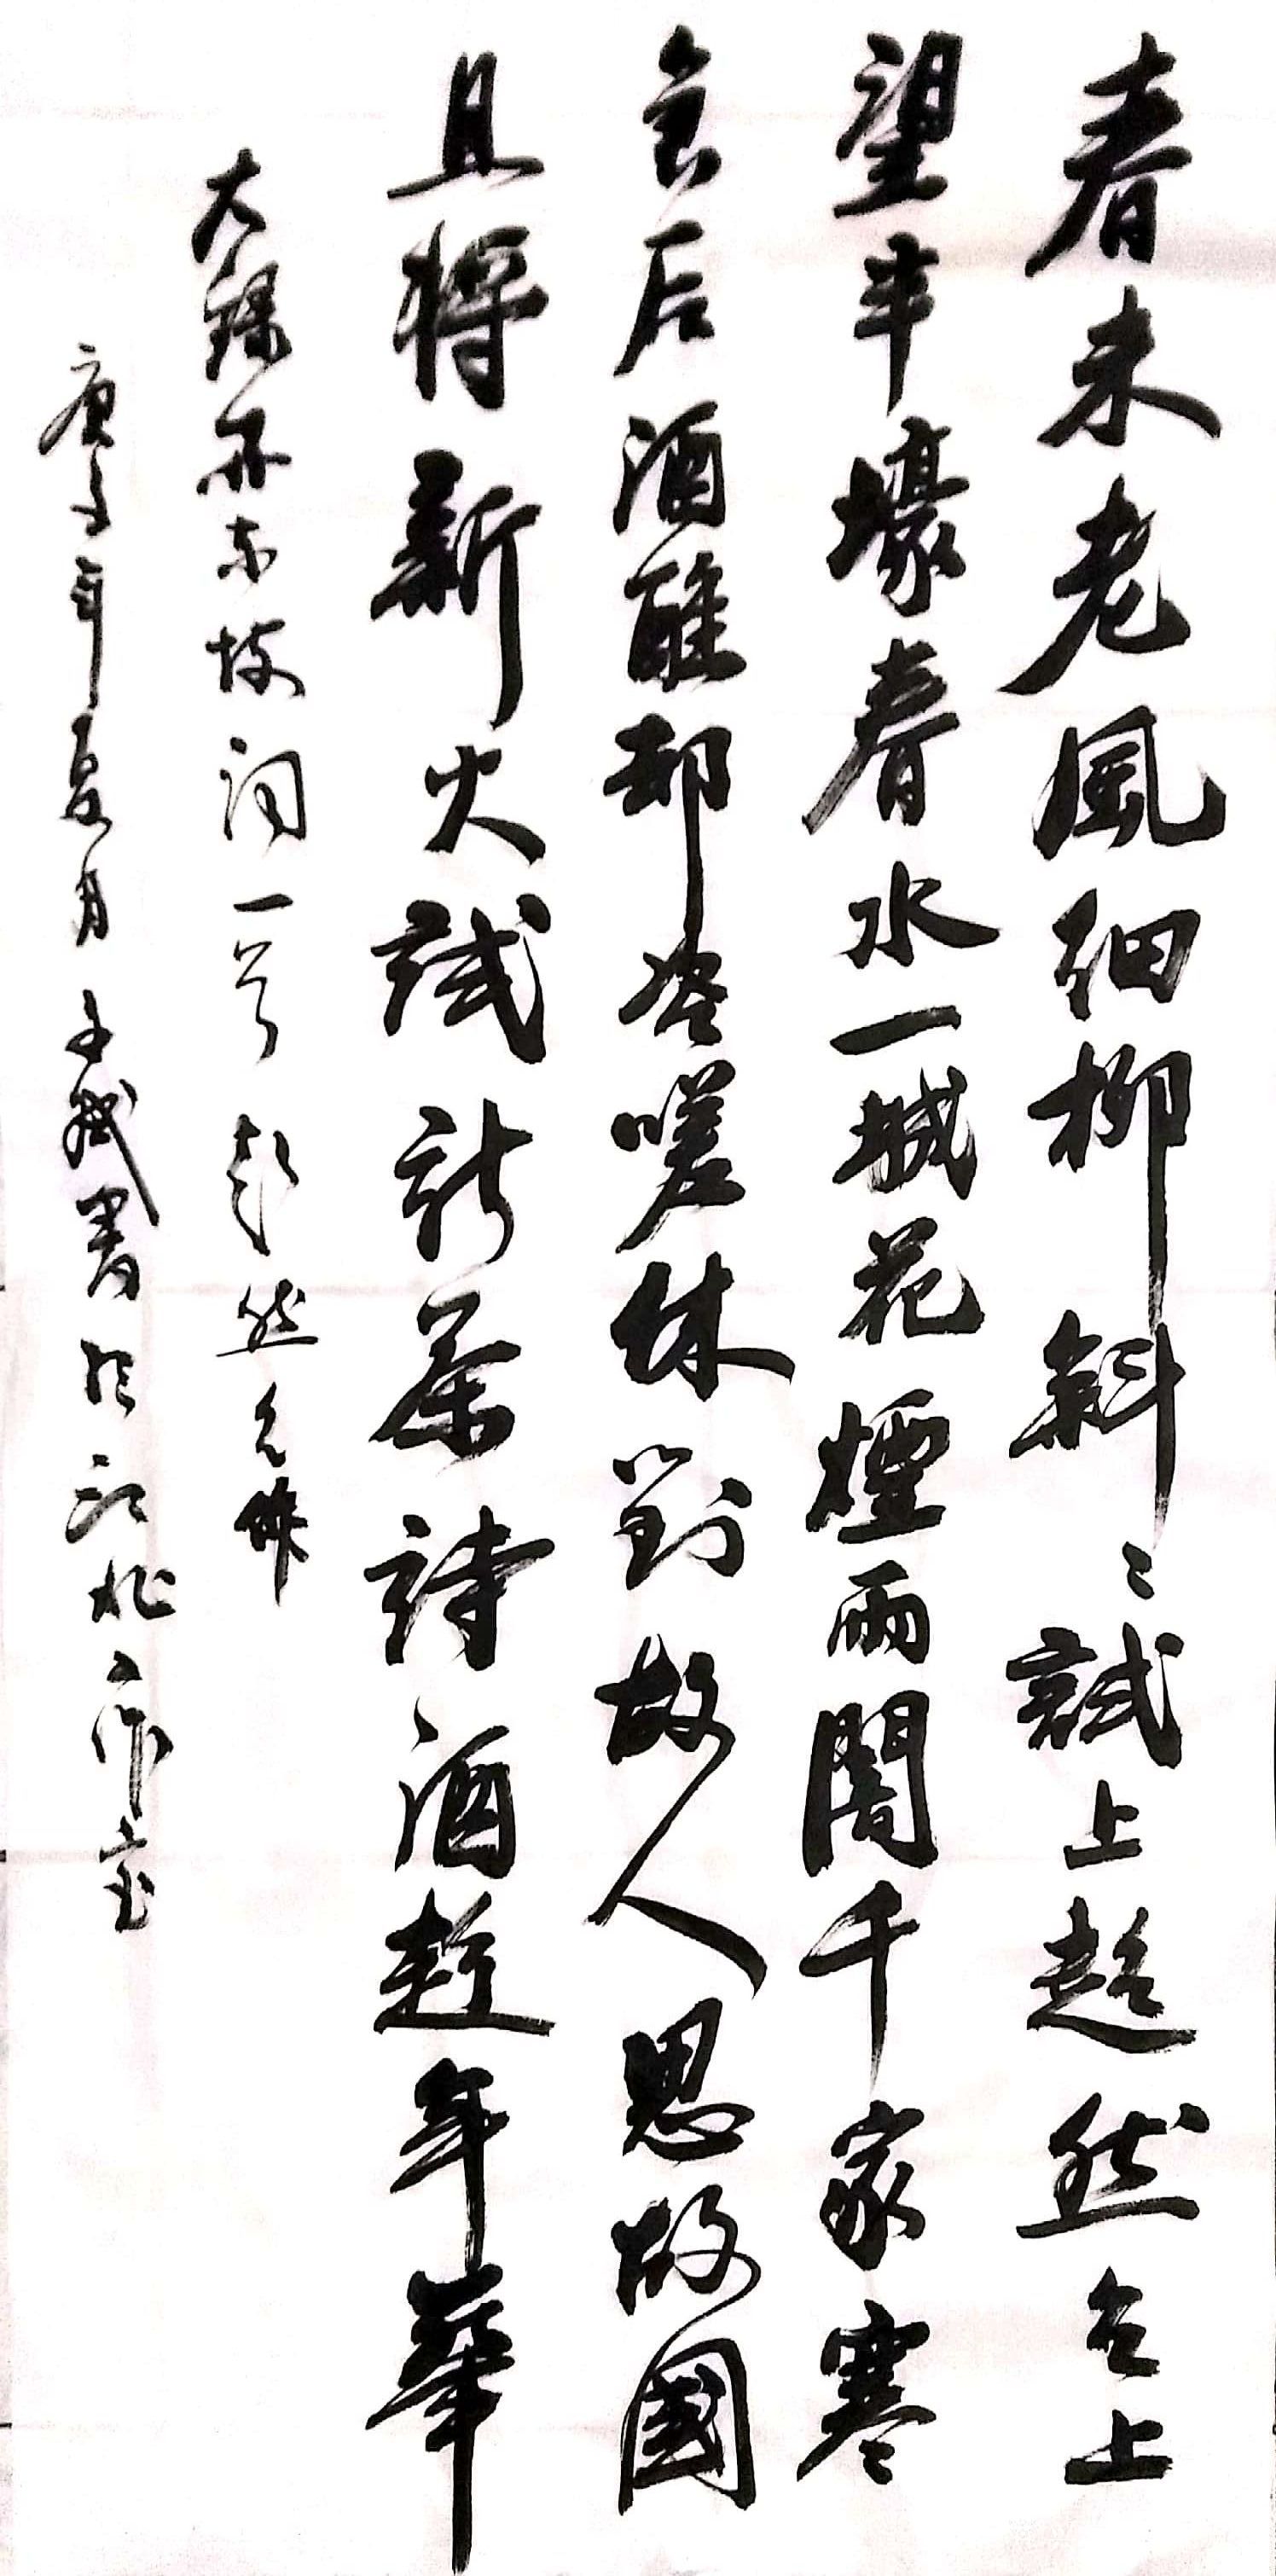 春未老風細柳斜〻試上超然台上
望半壕春水一城花煙雨闇千家寒
食后酒醒却咨嗟休對故人思故國
且将新火試新茶詩酒趁年華
錄苏东坡词一首超然台作
庚子年夏月書於江北工作室